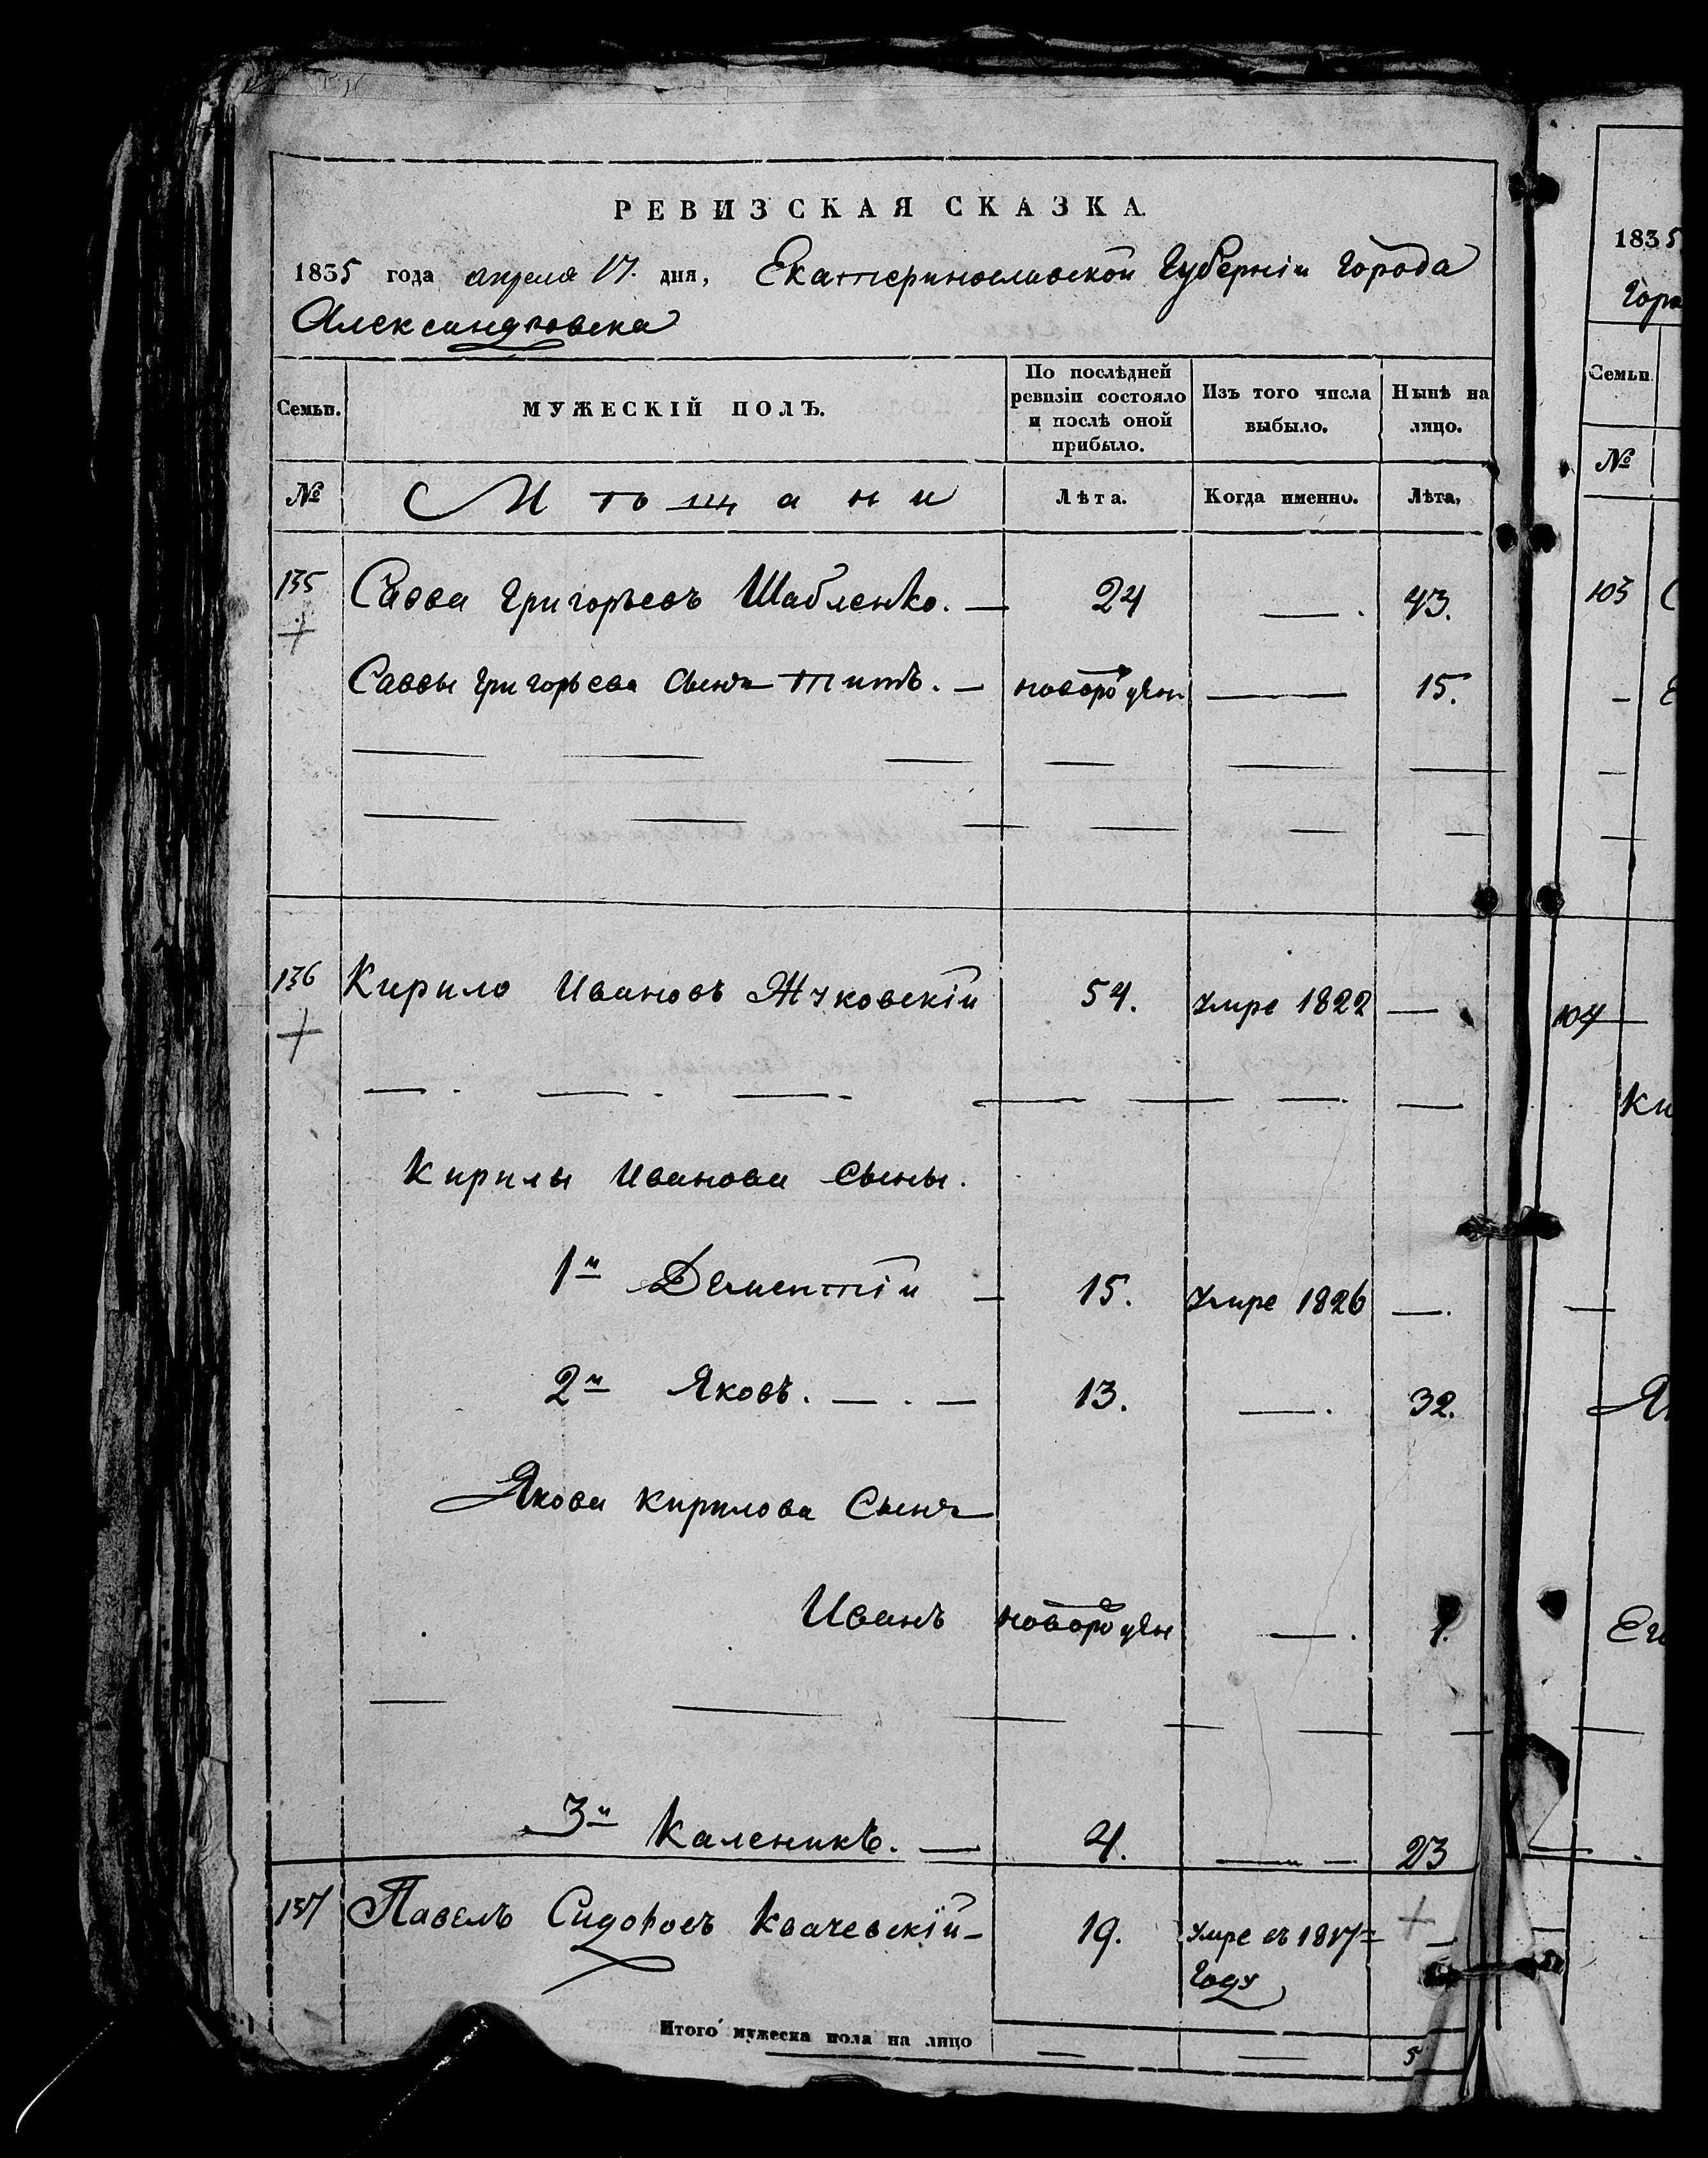 РЕВИЗСКАЯ СКАЗКА.
1835 года апреля 17. дня, Екатеринославской Губерніи города
Александровска
Семьи. МУЖЕСКІЙ ПОЛЪ. По послѣдней ревизіи состояло и послѣ оной прибыло. Изъ того числа выбыло. Нынѣ на лицо.
№ Мѣщани Лѣта. Когда именно. Лѣта,
135 Савва Григорьевъ Шабленко. — 24 — 43.
Саввы Григорьева Сынъ Титъ. — новорожден — 15.
136 Кирило Ивановъ Жуковскіи 54. умре 1822 —
Кирилы Иванова Сыны.
1й Дементіи — 15. умре 1826 —.
2й Яковъ. — . — 13. —. 32.
Якова Кирилова Сынъ
Иванъ новорожден —. 1.
3й Каленикъ. — 4. — 23
137 Павелъ Сидоровъ Квачевскій — 19. умре въ 1817 —
Году
Итого мужеска пола на лицо — — 5
1835
Горо
Семьи.
№
103 С
104
Ки
Як
Его